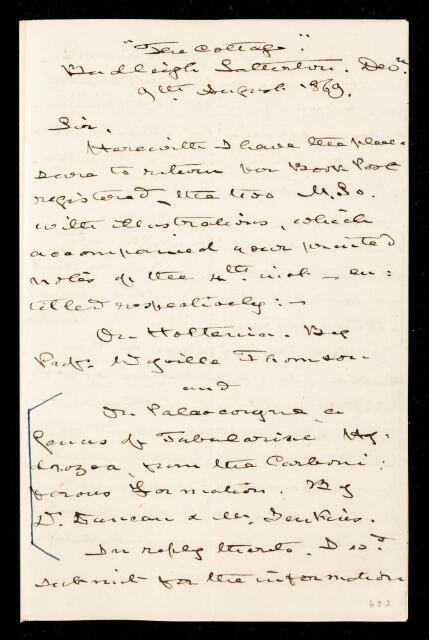 "The Cottage".
Budleigh Salterton. Devn.
9th August 1869.
Sir.
Herewith I have the plea=
sure to return per Book Post
registered, the two M.Ss.
with illustrations, which
accompanied your printed
notes of the 4th inst - en:
titled respectively: -
On Holtenia. By
Prof. Wyville Thomson
and
On Palaeocoryne, a
Genus of Tubularine Hy-
drozoa, from the Carboni:
ferous formation. By
Dr. Duncan & Mr. Jenkins.
In reply thereto, I wd.
submit for the information
623